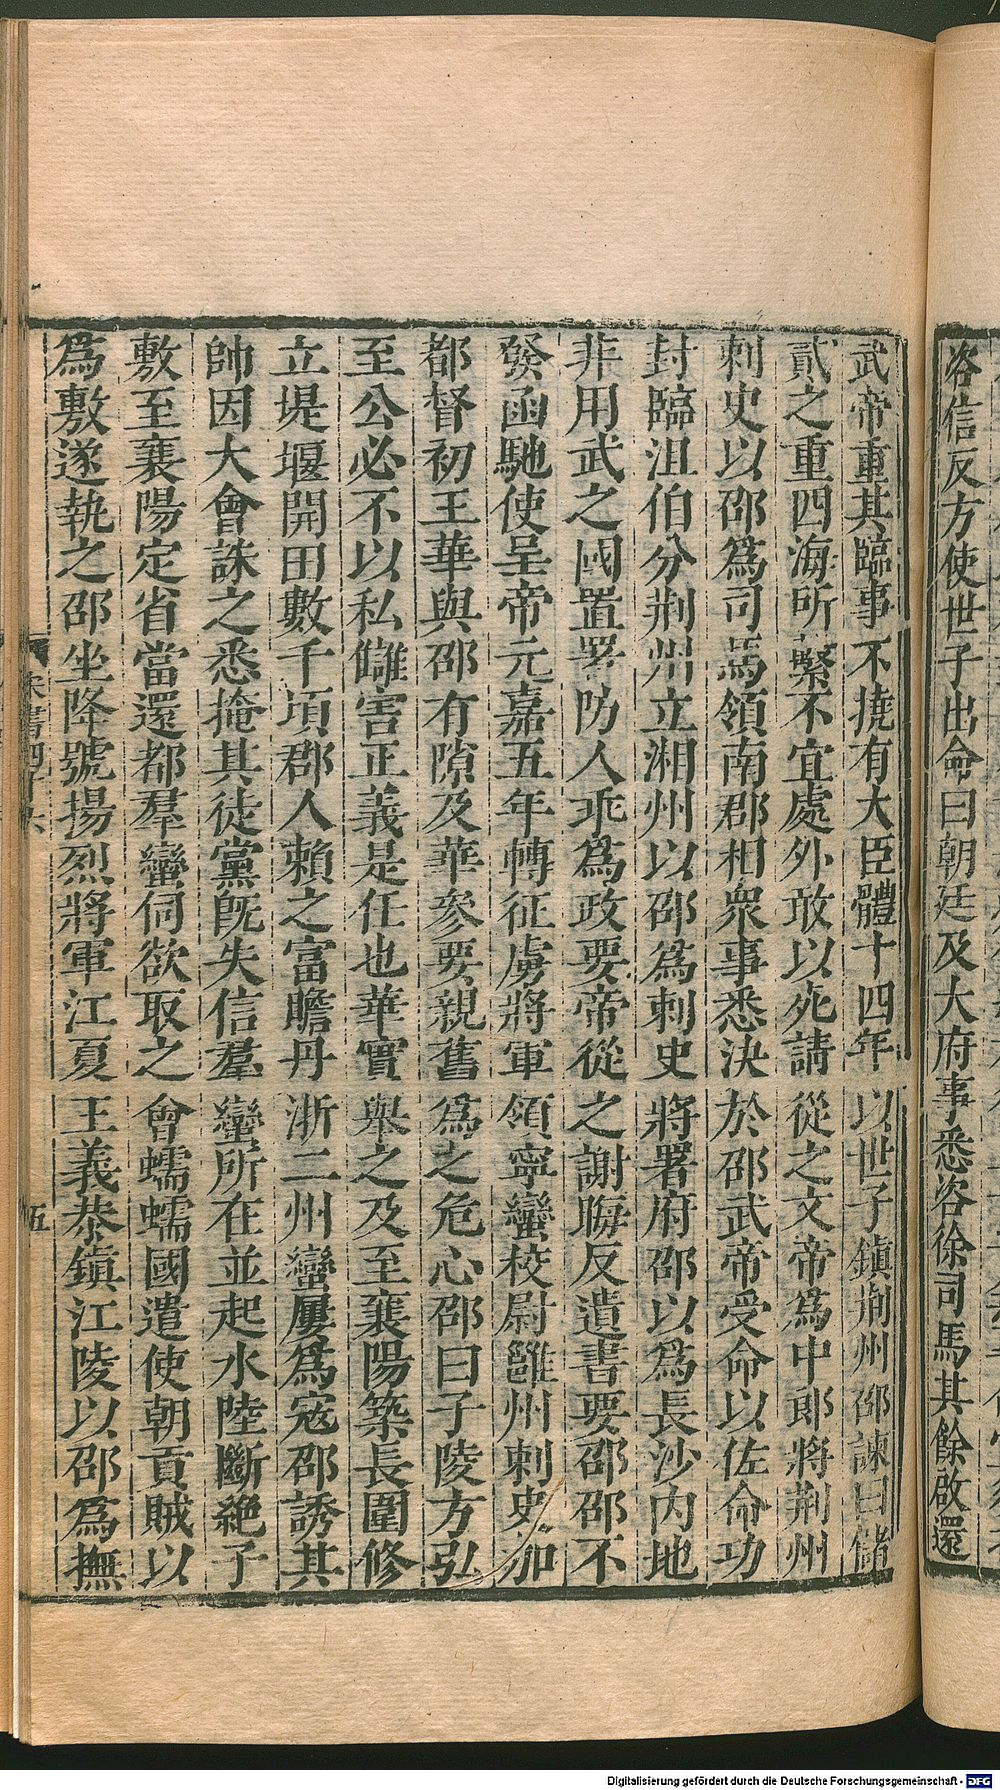 咨信反方使世子出命曰朝廷及大府事悉咨徐司馬其餘啟還
武帝重其臨事不撓有大臣體十四年以世子鎮荆州邵諫曰儲
貳之重四海所繫不宜處外敢以死請從之文帝為中郎將荆州
刺史以邵為司馬領南郡相衆事悉決於邵武帝受命以佐命功
封臨沮伯分荆州立湘州以邵為刺史將署府邵以為長沙内地
非用武之國置署防人乖為政要帝從之謝晦反遺書要邵邵不
發函馳使呈帝元嘉五年轉征虜將軍領寧蠻校尉雝州刺史加
都督初王華與邵有隙及華參要親舊為之危心邵曰子陵方弘
至公必不以私讎害正義是任也華實舉之及至襄陽築長圍修
立堤堰開田數千頃郡人賴之富贍丹浙二州蠻屢為寇邵誘其
帥因大會誅之悉掩其徒黨旣失信羣蠻所在並起水陸斷絶子
敷至襄陽定省當還都羣蠻伺欲取之會蠕蠕國遣使朝貢賊以
為敷遂執之邵坐降號揚烈將軍江夏王義恭鎮江陵以邵為撫
宋書四十六
五
Digitalisierung gefördert durch die Deutsche Forschungsgemeinschaft - DFG